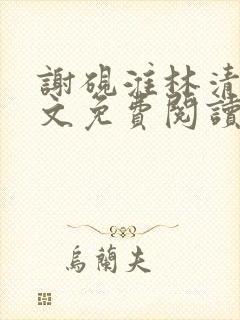 謝硯淮林清
文免費閱讀
烏蘭夫